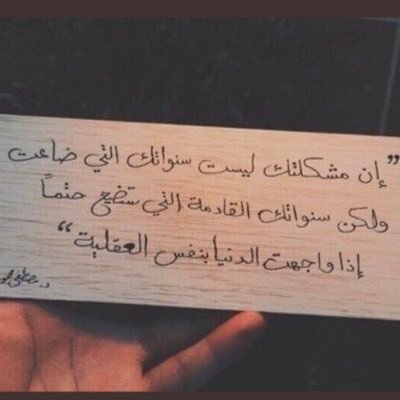 ”إن مشكلتك ليست سنواتك التي ضاعت
ولكن سنواتك القادمة التي ستضيع حتماً
إذا واجهت الدنيا بنفس العقلية“
د. مصطفى